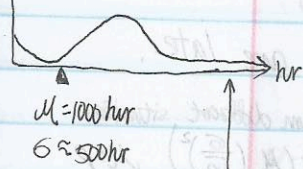 hr
μ=1000hr
σ≈500hr